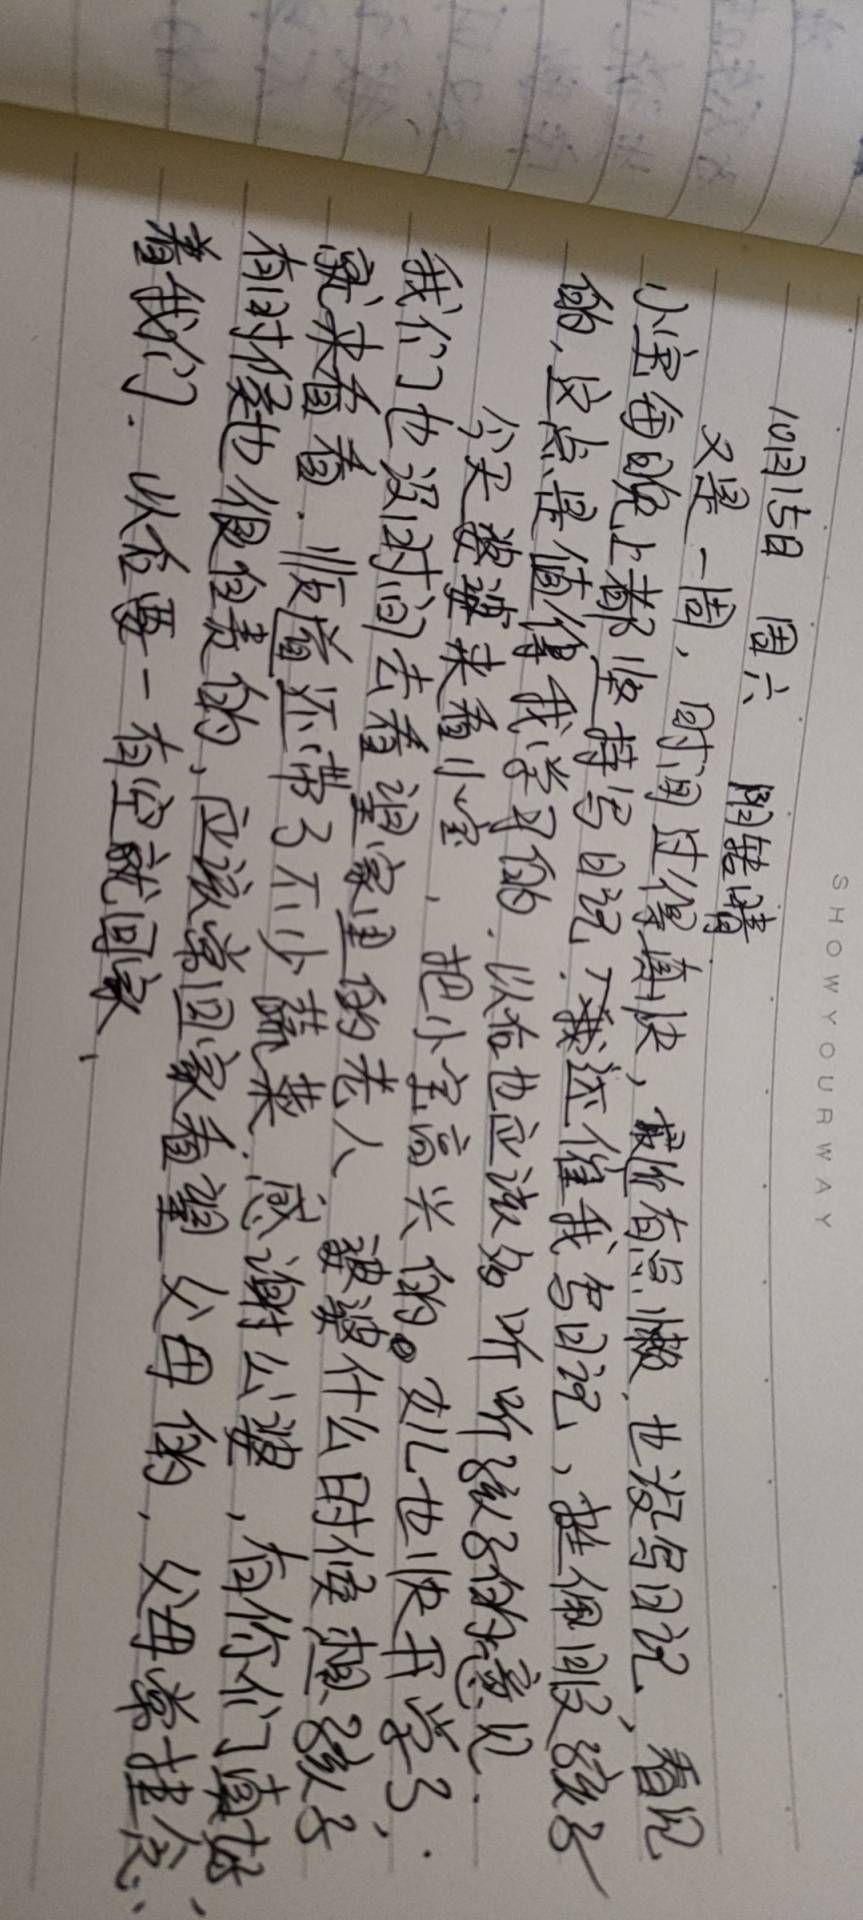 SHOWYOURWAY
10月15日 周六 阴转晴
又是一周，时间过得真快，最近有点懒，也没写日记，看见
小宝每晚上都坚持写日记，我还催我写日记，挺佩服孩子
的，这点是值得我学习的．以后也应该多听听孩子的意见．
今天婆婆来看小宝，把小宝高兴的。女儿也快开学了．
我们也没时间去看望家里的老人，婆婆什么时候想孩子
就来看看．顺道还带了不少蔬菜．感谢公婆，有你们真好，
有时候也很自责的，应该常回家看望父母的，父母常挂念
着我们．以后要一有空就回家、